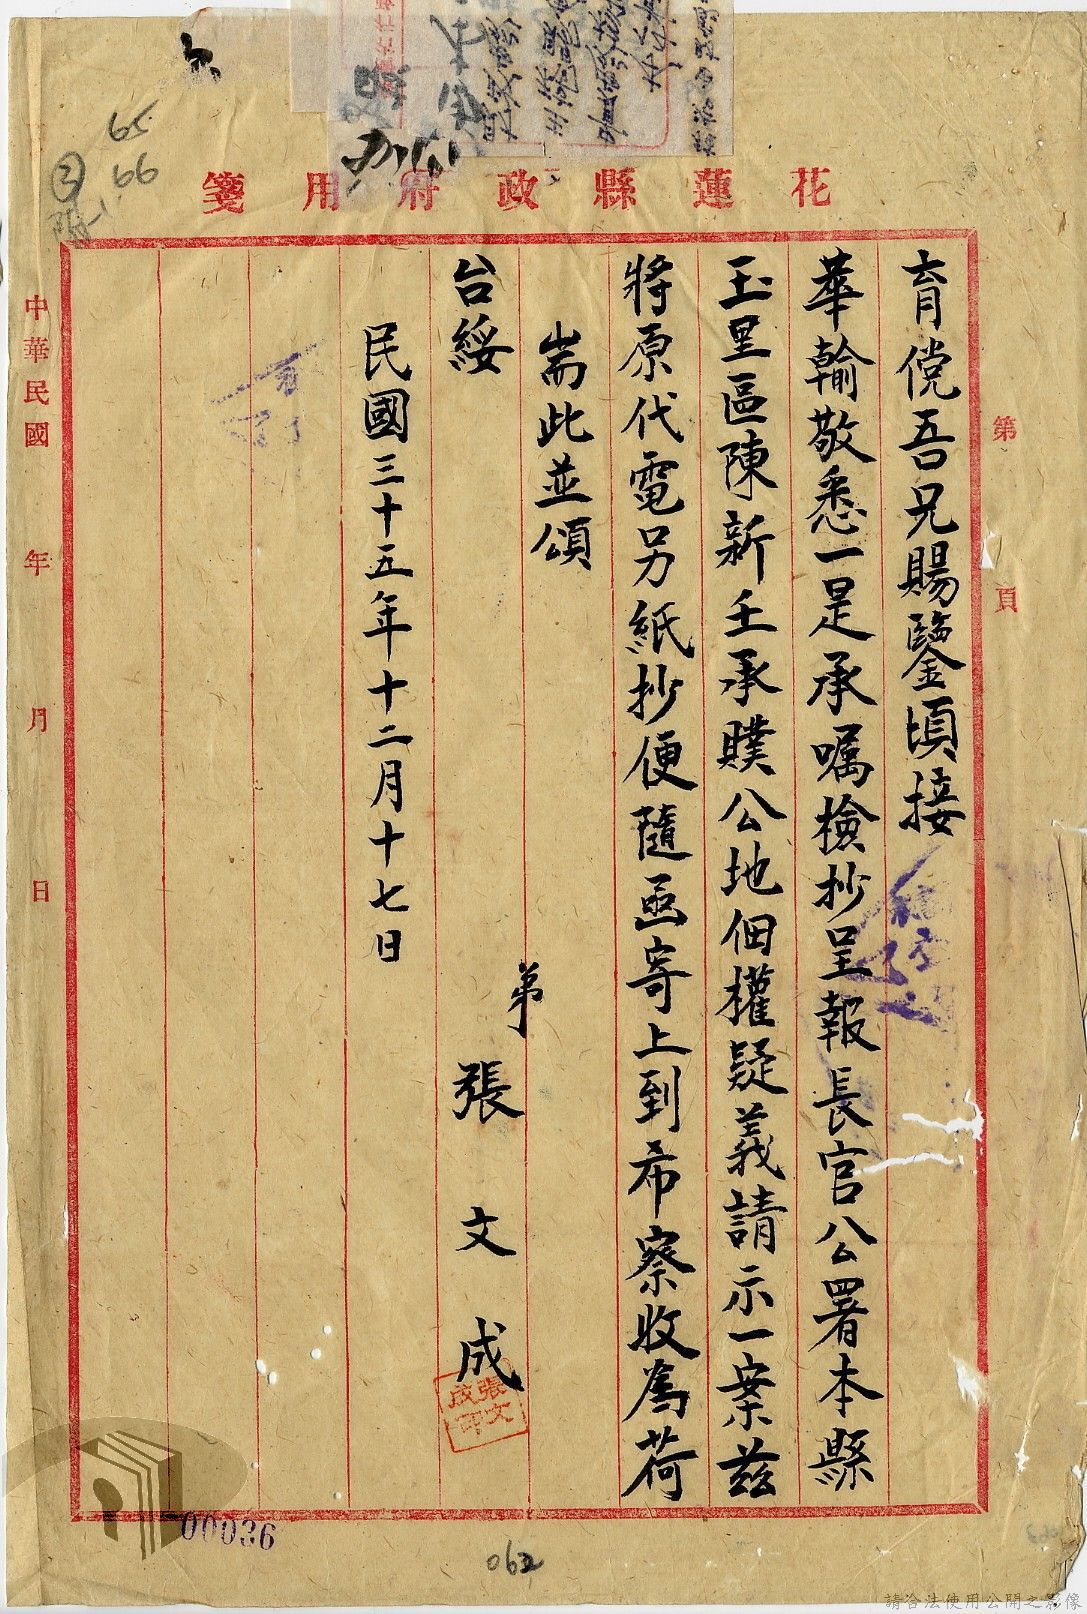 花蓮縣政府用箋
第 頁
育傥吾兄賜鑒頃接
華翰敬悉一是承嘱檢抄呈報長官公署本縣
玉里區陳新壬承贌公地佃權疑義請示一案茲
將原代電另紙抄便隨函寄上到希察收為荷
耑此並頌
台綏
弟 張文成
張文成印
民國三十五年十二月十七日
中華民國 年 月 日
65
66
00036
062
請合法使用公開之影像